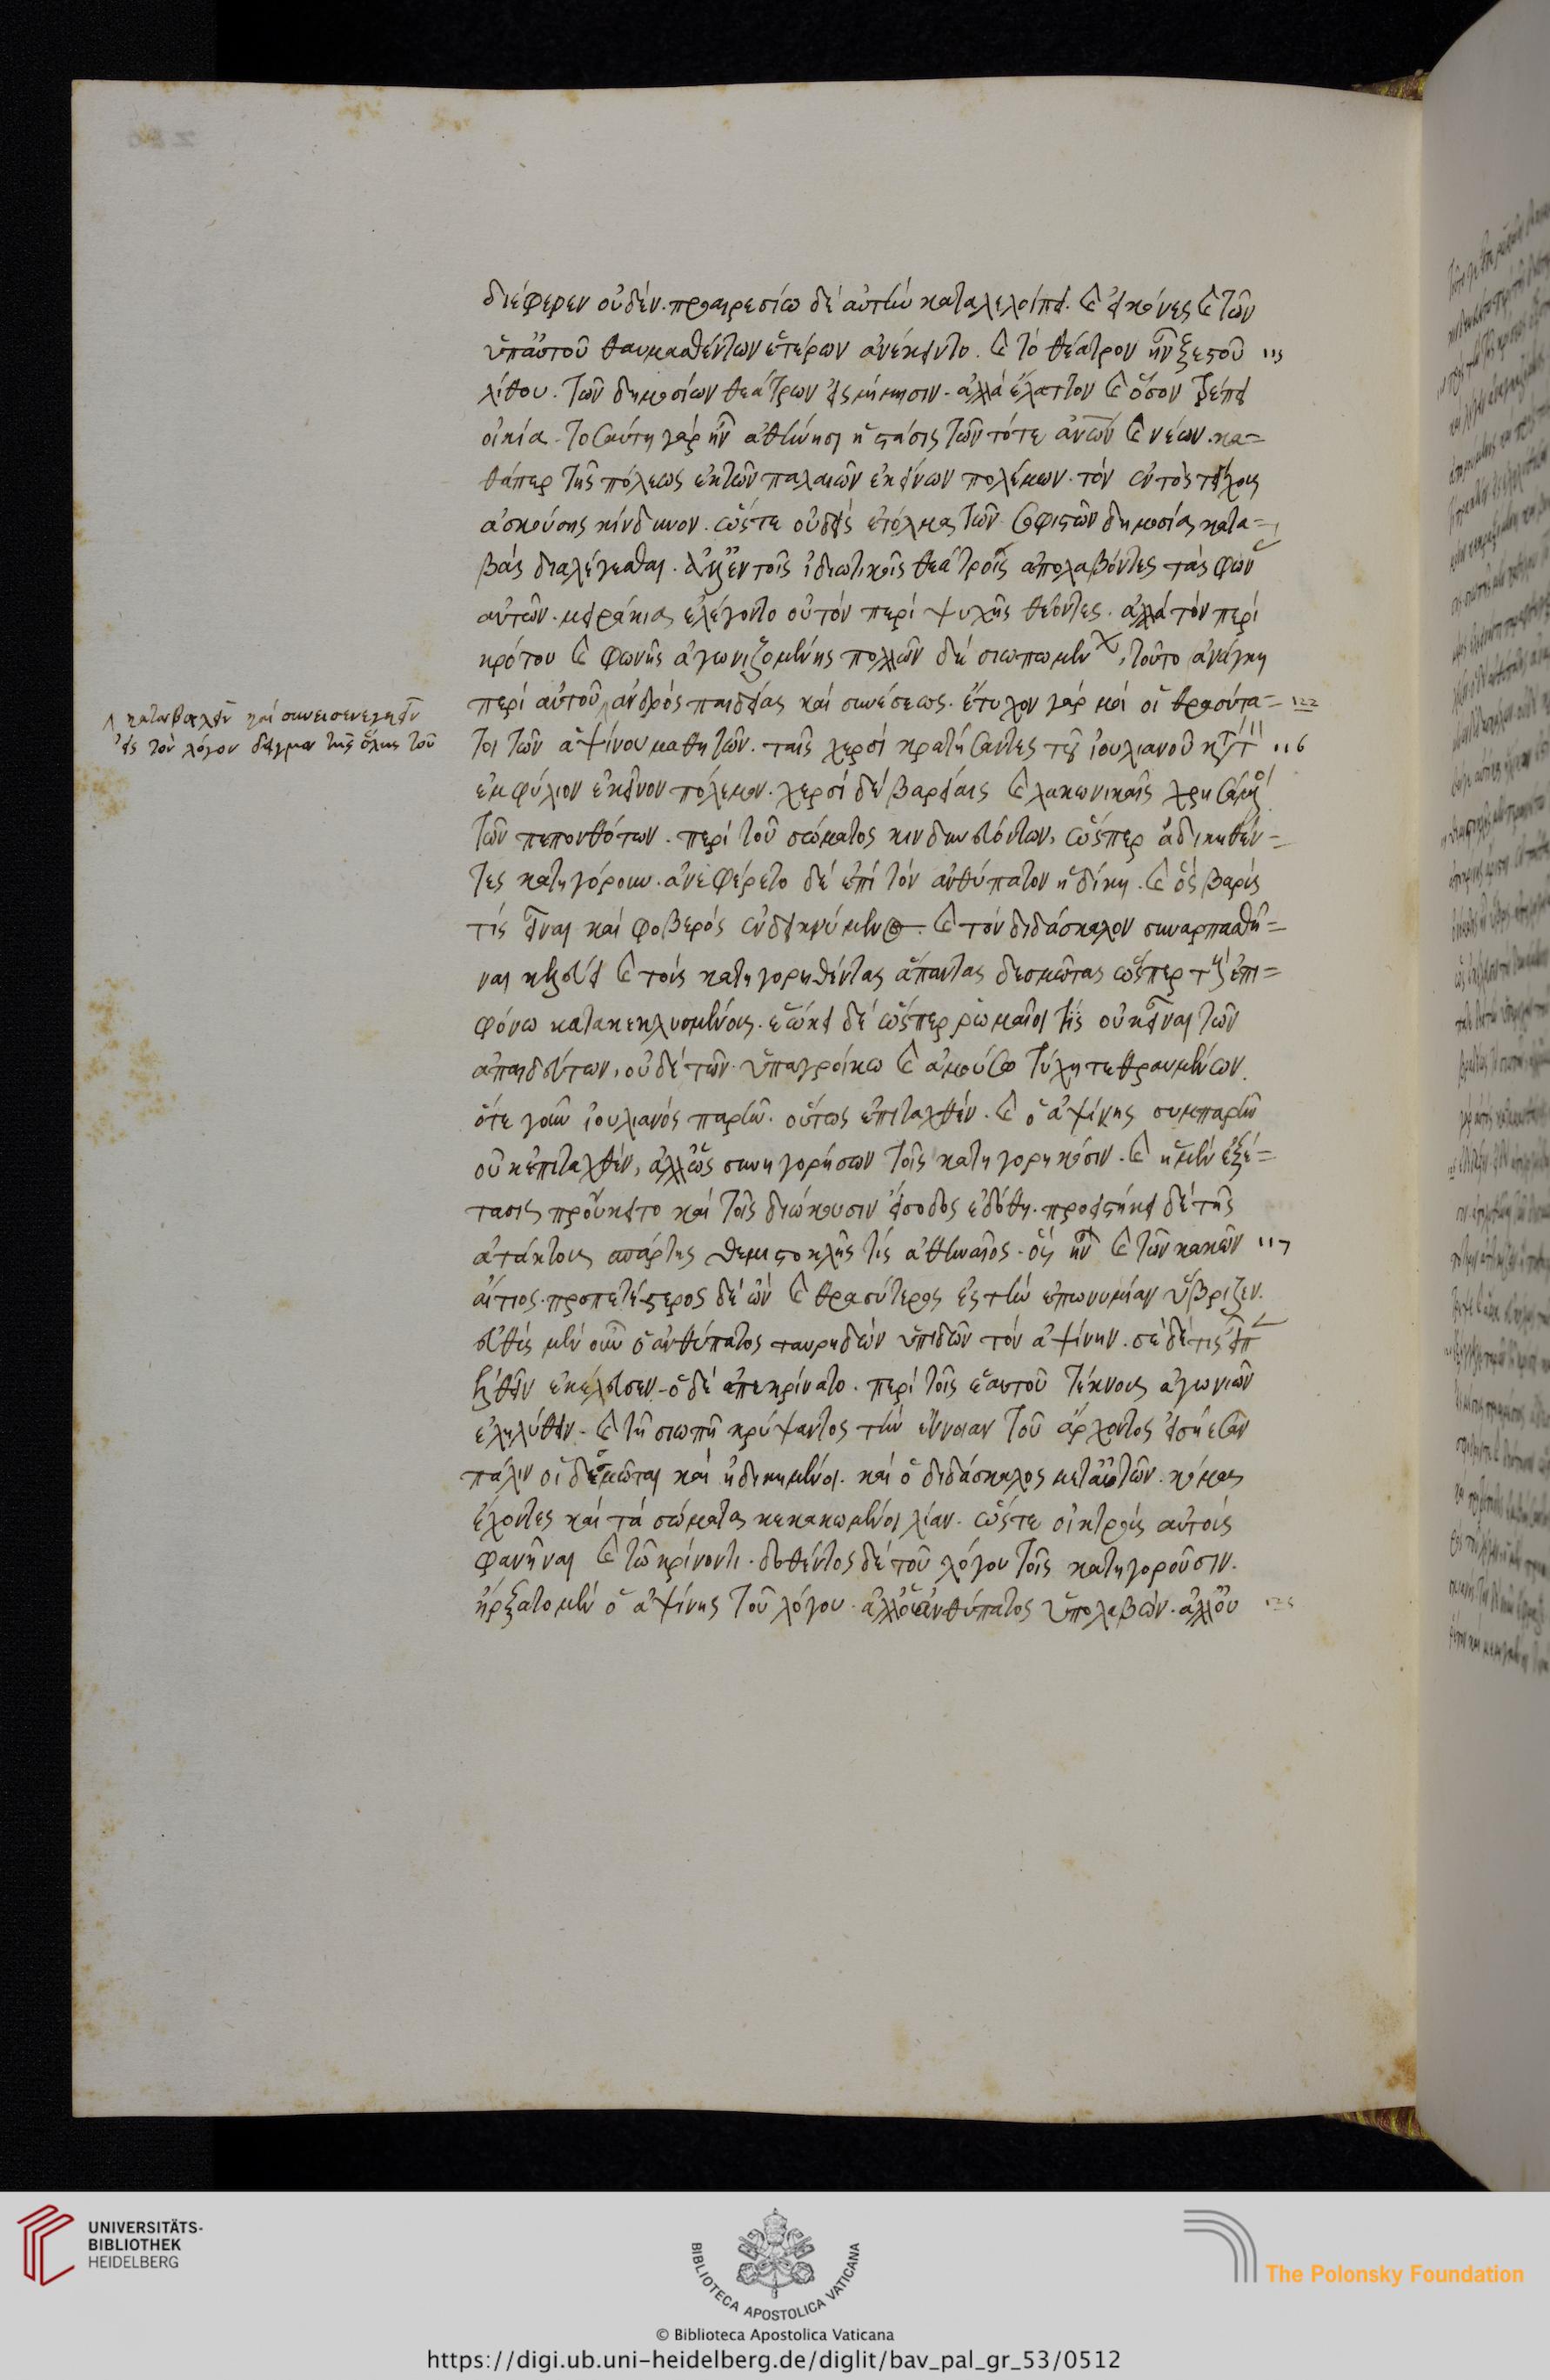 διέφερεν οὐδέν. προαιρεσίω δὲ αὐτὴν καταλελοίπει. καὶ εἰκόνες καὶ τῶν
ὑπ' αὐτοῦ θαυμασθέντων ἑτέρων ἀνέκειντο. καὶ τὸ θέατρον ἦν ξεστοῦ 115
λίθου. τῶν δημοσίων θεάτρων εἰς μίμησιν. ἀλλὰ ἔλαττον καὶ ὅσον πρέπει
οἰκία. τοσαύτη γὰρ ἦν ἀθήνησι ἡ στάσις τῶν τότε ἀνων καὶ νέων. κα=
θάπερ τῆς πόλεως ἐκ τῶν παλαιῶν ἐκείνων πολέμων. τὸν ἐντὸς τείχους
ἀσκούσης κίνδυνον. ὥστε οὐδεὶς ἐτόλμα τῶν σοφιστῶν δημοσίᾳ κατα=
βὰς διαλέγεσθαι. ἀλλ' ἐν τοῖς ἰδιωτικοῖς θεάτροις ἀπολαβόντες τὰς φων
αὐτῶν. μειράκια ἐλέγοντο οὐ τὸν περὶ ψυχῆς θέοντες. ἀλλὰ τὸν περὶ
κρότου καὶ φωνῆς ἀγωνιζομένης πολλῶν δὲ σιωπωμένων, τοῦτο ἀνάγκη
περὶ αὐτοῦ ἀνδρὸς παιδείας καὶ συνέσεως. ἔτυχον γάρ μοι οἱ θρασύτα= 122
⋀ καταβαλεῖν καὶ συνεισενεγκεῖν
εἰς τὸν λόγον δεῖγμα τῆς ὅλης τοῦ
τοι τῶν ἀψίνου μαθητῶν. ταῖς χερσὶ κρατήσαντες τῶν ἰουλιανοῦ κατὰ τὸν 116
ἐμφύλιον ἐκεῖνον πόλεμον. χερσὶ δὲ βαρείαις καὶ λακωνικαῖς χρησάμενοι
τῶν πεπονθότων. περὶ τοῦ σώματος κινδυνευόντων, ὥσπερ ἀδικηθέν=
τες κατηγόρουν. ἀνεφέρετο δὲ ἐπὶ τὸν ἀνθύπατον ἡ δίκη. καὶ ὃς βαρύς
τις εἶναι καὶ φοβερὸς ἐνδεικνύμενος. καὶ τὸν διδάσκαλον συναρπασθῆ=
ναι κελεύει καὶ τοὺς κατηγορηθέντας ἅπαντας δεσμώτας ὥσπερ τοὺς ἐπι=
φόνω κατακεκλυσμένους. ἐῴκει δὲ ὥσπερ ῥωμαῖοί τις οὐκ εἶναι τῶν
ἀπαιδεύτων, οὐδὲ τῶν ὑπ' ἀγροίκω καὶ ἀμούσω τύχη τεθραυμένων.
ὅτε γοῦν ἰουλιανὸς παρῆν. οὕτως ἐπιταχθέν. καὶ ὁ ἀψίνης συμπαρῆν
οὐκ ἐπιταχθέν, ἀλλ' ὡς συνηγορήσων τοῖς κατηγορηκόσιν. καὶ ἡ μὲν ἐξέ=
τασις προύκειτο καὶ τοῖς διώκουσιν εἴσοδος ἐδόθη. προειστήκει δὲ τῆς
ἀτάκτου σπάρτης θεμιστοκλῆς τις ἀθηναῖος. ὃς ἦν καὶ τῶν κακῶν 117
αἴτιος. προπετέστερος δὲ ὢν καὶ θρασύτερος ἐς τὴν ἐπωνυμίαν ὕβριζεν.
εὐθὺς μὲν οὖν ὁ ἀνθύπατος ταυρηδὸν ὑπιδὼν τὸν ἀψίνην. σὲ δὲ τίς εἶπεν
ἐλθεῖν ἐκέλευσεν. ὁ δὲ ἀπεκρίνατο. περὶ τοῖς ἑαυτοῦ τέκνοις ἀγωνιῶν
ἐληλύθειν. καὶ τῇ σιωπῇ κρύψαντος τὴν ἔννοιαν τοῦ ἄρχοντος εἰσήεσαν
πάλιν οἱ δεσμῶται καὶ ἠδικημένοι. καὶ ὁ διδάσκαλος μετ' αὐτῶν. κόμας
ἔχοντες καὶ τὰ σώματα κεκακωμένοι λίαν. ὥστε οἰκτροὺς αὐτοὺς
φανῆναι καὶ τῷ κρίνοντι. δοθέντος δὲ τοῦ λόγου τοῖς κατηγοροῦσιν.
ἤρξατο μὲν ὁ ἀψίνης τοῦ λόγου. ἀλλ' ὁ ἀνθύπατος ὑπολαβών. ἀλλ' οὐ
UNIVERSITÄTS-
BIBLIOTHEK
HEIDELBERG
BIBLIOTECA APOSTOLICA VATICANA
© Biblioteca Apostolica Vaticana
The Polonsky Foundation
https://digi.ub.uni-heidelberg.de/diglit/bav_pal_gr_53/0512